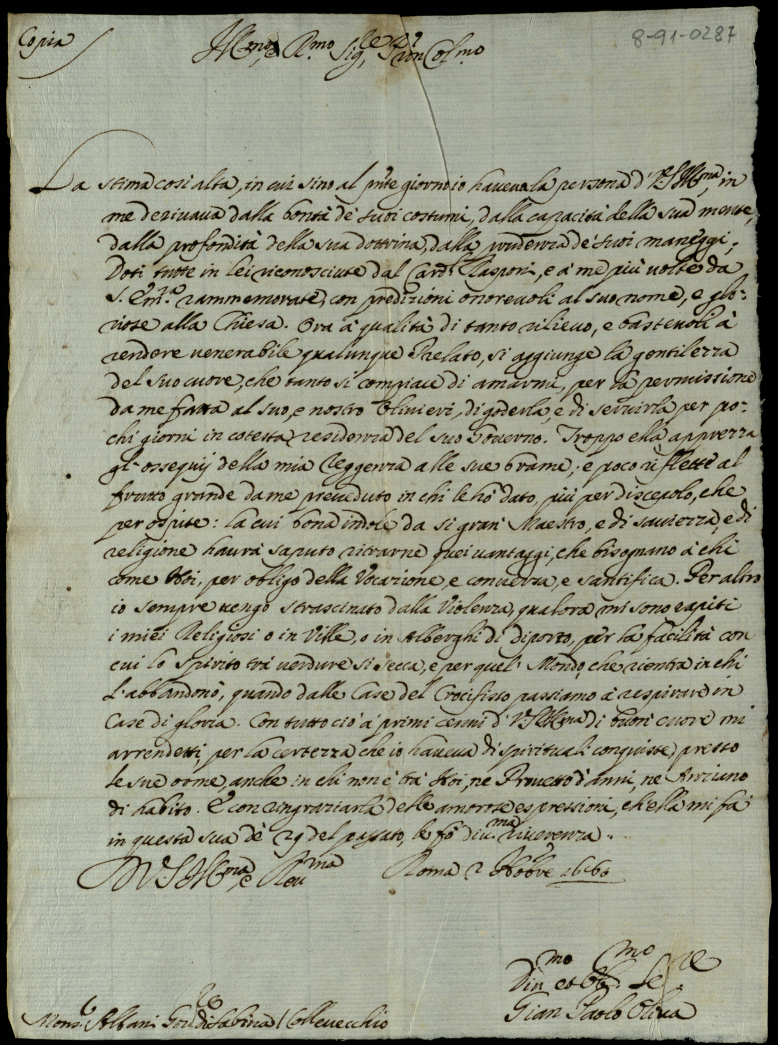 Copia
8-91-0287
Ill.mo, e R.mo Sig.re P.ron Col.mo
La stima così alta, in cui sino al pñte giorno io haveva la persona d'V.S. Ill.ma, in
me derivava dalla bontà de' suoi costumi, dalla capacità della sua mente,
dalla profondità della sua dottrina, dalla prudenza de' suoi maneggi.
Doti tutte in lei riconosciute dal Card.l Rasponi, e à me più volte da
S. Em.za rammemorate, con predizioni onorevoli al suo nome, e glo-
riose alla Chiesa. Ora à qualità di tanto rilievo, e bastevoli à
rendere venerabile qualunque Prelato, si aggiunge la gentilezza
del suo cuore, che tanto si compiace di amarmi, per la permissione
da me fatta al suo, e nostro Olivieri, di goderla, e di servirla per po-
chi giorni in cotesta residenza del suo Governo. Troppo ella apprezza
gl'ossequij della mia Reggenza alle sue brame, e poco riflette al
frutto grande da me preveduto in chi le hò dato, più per discepolo, che
per ospite: la cui bona indole da si gran Maestro, e di saviezza, e di
religione haurà saputo ritrarne quei vantaggi, che bisognano à chi
come Noi, per obligo della Vocazione, e conversa, e santifica. Per altro
io sempre vengo strascinato dalla Violenza, qualora mi sono rapiti
i miei Religiosi o in Ville, o in Alberghi di diporto, per la facilità con
cui lo Spirito trà verdure si secca, e per quel Mondo, che rientra in chi
l'abbandonò, quando dalle Case del Crocifisso passiamo à respirare in
Case di gloria. Con tutto ciò à primi cenni d'V.S. Ill.ma di buon cuore mi
arrendetti, per la certezza che io haveva di spirituali conquiste, presso
le sue orme, anche in chi non è trà Noi, ne Provetto d'anni, ne Anziano
di habito. E con ringraziarla delle amorose espressioni, ch'ella mi fà
in questa sua de' 29 del passato, le fò div.ma riverenza.
D V.S. Ill.ma, e Rev.ma Roma 2 8bre 1660
Div.mo et Obb.mo Se.re
Gian Paolo Oliva
Mons.r Albani Gov.re di Sabina / Collevecchio